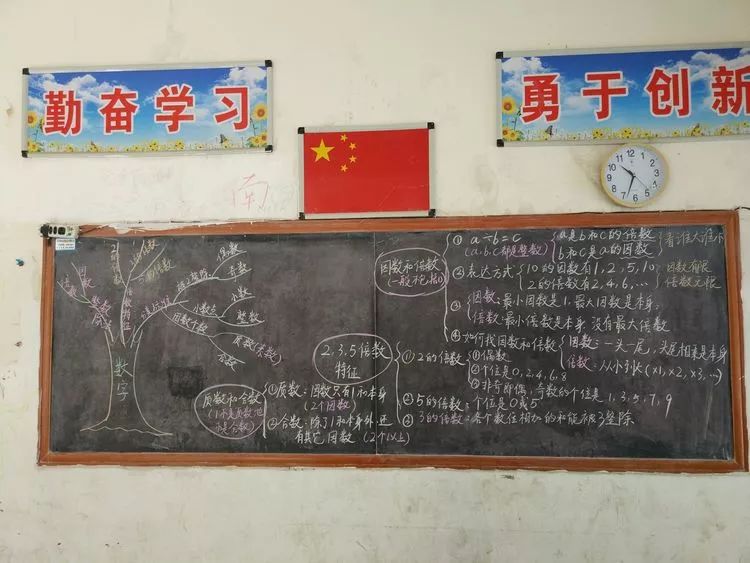 勤奋学习
勇于创新
南
因数和倍数
① a÷b=c
(a、b、c都是整数)
a是b和c的倍数
b和c是a的因数
看谁大谁小
② 表达方式
10的因数有1,2,5,10
2的倍数有2,4,6,…
因数有限
倍数无限
③
因数:最小因数是1,最大因数是本身
倍数:最小倍数是本身 没有最大倍数
④ 如何找因数和倍数
因数:一头一尾,头尾相乘是本身
倍数:从小到大(×1,×2,×3,…)
2,3,5倍数
特征
① 2的倍数
①偶数
②个位是0,2,4,6,8
③非奇即偶,奇数的个位是1,3,5,7,9
② 5的倍数:个位是0或5
③ 3的倍数:各个数位相加的和能被3整除
质数和合数
(1不是质数也
不是合数)
① 质数:因数只有1和本身
(2个因数)
② 合数:除了1和本身外 还
有其它因数 (2个以上)
数字
倍数
因数
整数
倍数特征
2的倍数
5的倍数
3的倍数
偶数
奇数
小数点
小数
整数
因数个数
质数(素数)
合数